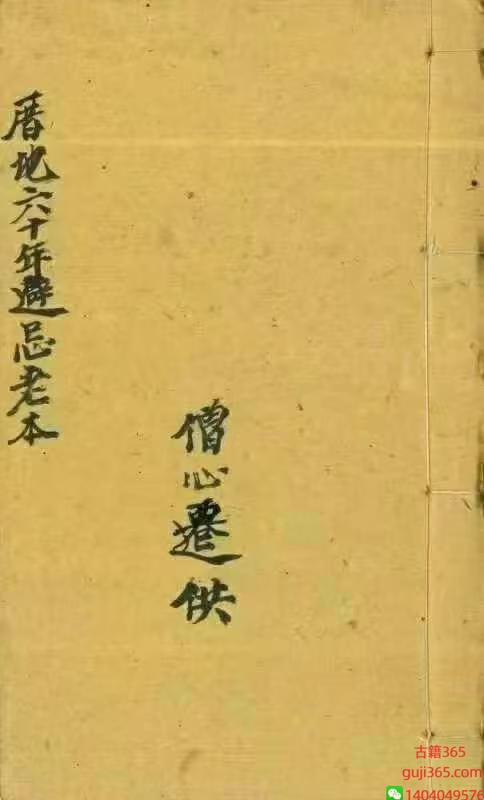 僧心遷供
厝地六十年避忌老本
古籍365
guji365.com
1404049576